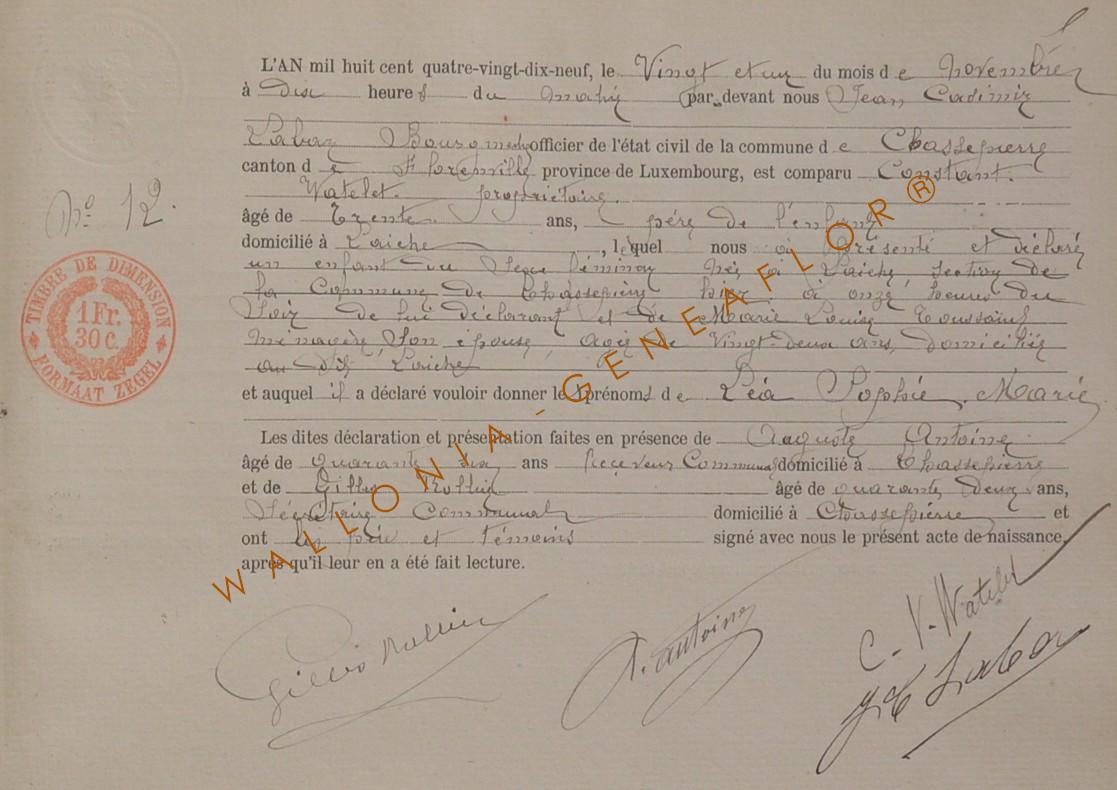 L'AN mil huit cent quatre-vingt-dix-neuf, le Vingt et un du mois de Novembre
à Dix heures du matin par devant nous Jean Casimir
Labar Bourgmestre officier de l'état civil de la commune de Chassepierre
canton de Florenville province de Luxembourg, est comparu Constant
Watelet propriétaire.
âgé de Trente ans, père de l'enfant
domicilié à Laiche, lequel nous a présenté et déclaré
un enfant du Sexe féminin né à Laiche, section de
No 12.
la Commune de Chassepierre hier à onze heures du
Soir de lui déclarant et de Marie Louise Toussaint
TIMBRE DE DIMENSION
1 Fr.
30 C.
FORMAAT ZEGEL
ménagère Son épouse, âgée de Vingt-deux ans, domiciliée
au dit Laiche
et auquel il a déclaré vouloir donner les prénoms de Léa Sophie Marie
Les dites déclaration et présentation faites en présence de Auguste Antoine
âgé de quarante ans Receveur Communal domicilié à Chassepierre
et de Gilles Rollin âgé de quarante Deux ans,
Secrétaire Communal domicilié à Chassepierre et
ont les père et témoins signé avec nous le présent acte de naissance,
après qu'il leur en a été fait lecture.
WALLONIA-GENEAFLOR®
Gilles Rollin A. Antoine C. V. Watelet
Labar